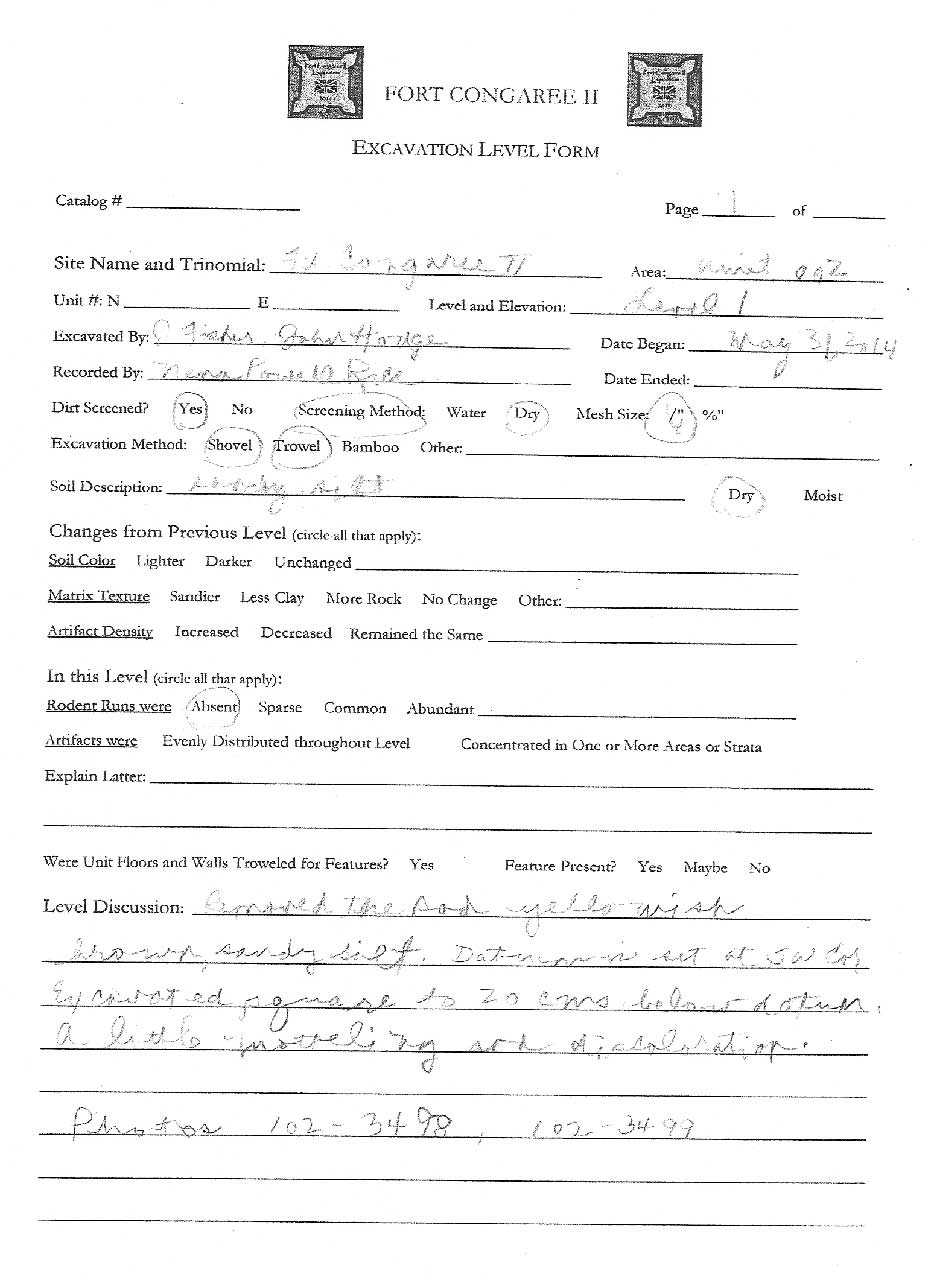 FORT CONGAREE II
EXCAVATION LEVEL FORM
Catalog #
Page 1 of
Site Name and Trinomial: Ft Congaree II Area: Unit 002
Unit #: N E Level and Elevation: Level 1
Excavated By: Fisher, John Hodge Date Began: May 31, 2014
Recorded By: Date Ended:
Dirt Screened? Yes No Screening Method: Water Dry Mesh Size: ¼" ⅛"
Excavation Method: Shovel Trowel Bamboo Other:
Soil Description: sandy silt Dry Moist
Changes from Previous Level (circle all that apply):
Soil Color Lighter Darker Unchanged
Matrix Texture Sandier Less Clay More Rock No Change Other:
Artifact Density Increased Decreased Remained the Same
In this Level (circle all that apply):
Rodent Runs were Absent Sparse Common Abundant
Artifacts were Evenly Distributed throughout Level Concentrated in One or More Areas or Strata
Explain Latter:
Were Unit Floors and Walls Troweled for Features? Yes Feature Present? Yes Maybe No
Level Discussion: Removed the sod yellowish
brown, sandy silt. Datum is set at SW Cor
Excavated square to 20 cms below datum.
A little motteling and discoloration.
Photos 102-3498, 102-3499